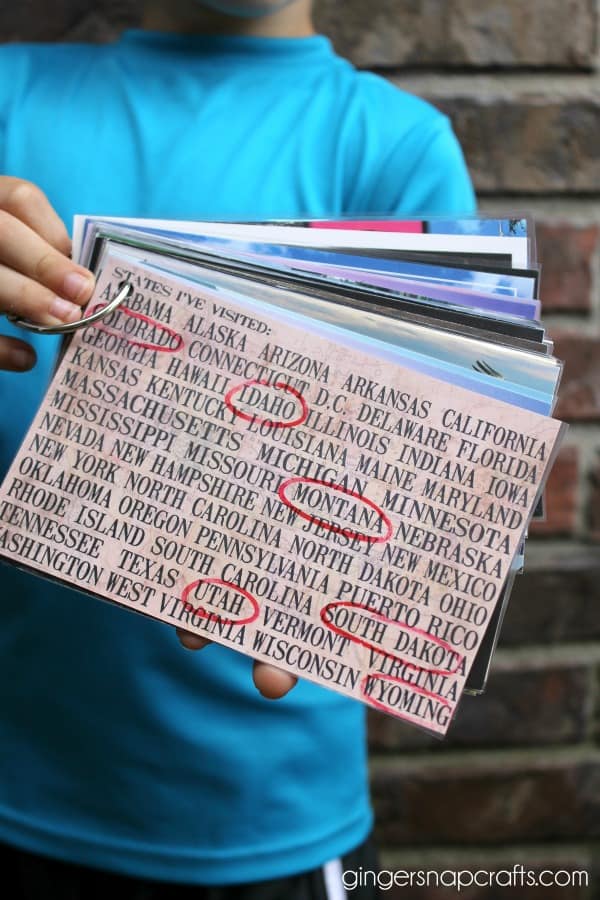 STATES I'VE VISITED:
ALABAMA ALASKA ARIZONA ARKANSAS CALIFORNIA
COLORADO CONNECTICUT D.C. DELAWARE FLORIDA
GEORGIA HAWAII IDAHO ILLINOIS INDIANA IOWA
KANSAS KENTUCKY LOUISIANA MAINE MARYLAND
MASSACHUSETTS MICHIGAN MINNESOTA
MISSISSIPPI MISSOURI MONTANA NEBRASKA
NEVADA NEW HAMPSHIRE NEW JERSEY NEW MEXICO
NEW YORK NORTH CAROLINA NORTH DAKOTA OHIO
OKLAHOMA OREGON PENNSYLVANIA PUERTO RICO
RHODE ISLAND SOUTH CAROLINA SOUTH DAKOTA
TENNESSEE TEXAS UTAH VERMONT VIRGINIA
ASHINGTON WEST VIRGINIA WISCONSIN WYOMING
gingersnapcrafts.com